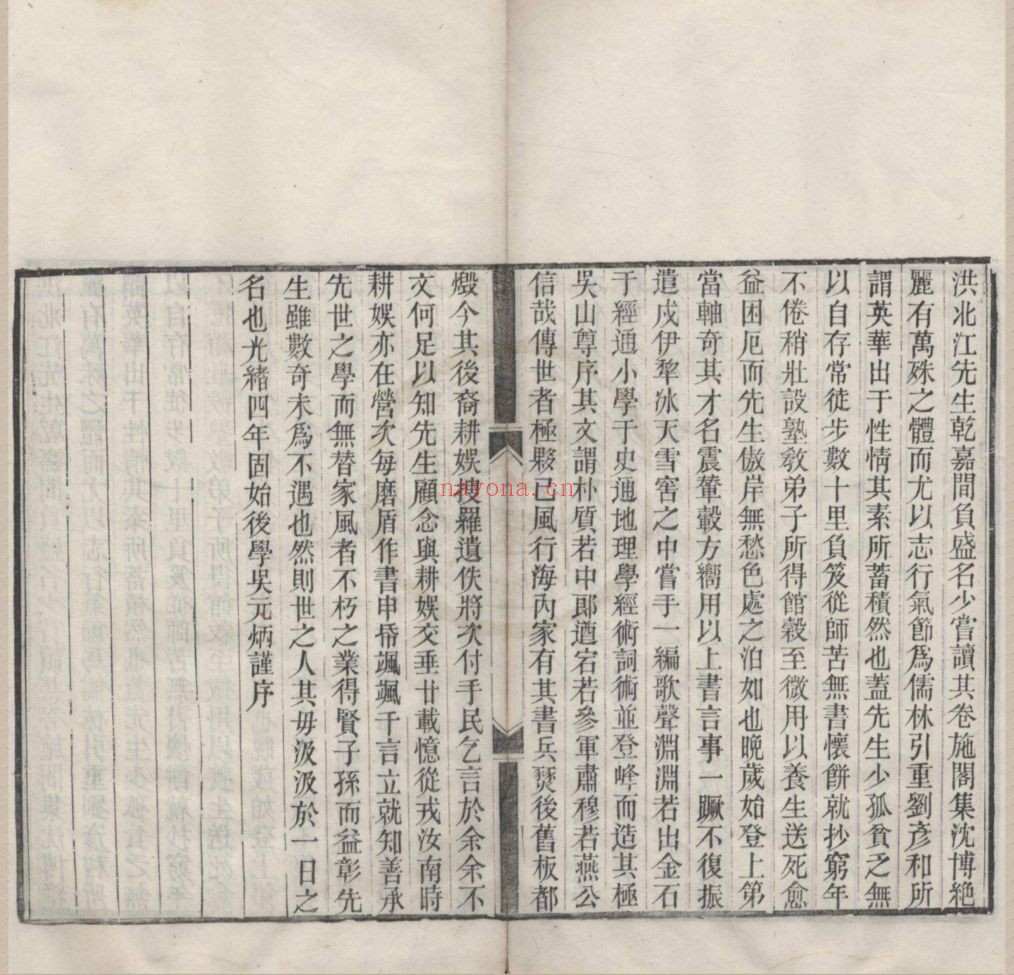 洪北江先生乾嘉間負盛名少嘗讀其卷施閣集沈博絕
麗有萬殊之體而尤以志行氣節爲儒林引重劉彥和所
謂英華出于性情其素所蓄積然也蓋先生少孤貧乏無
以自存常徒步數十里負笈從師苦無書懷餅就抄窮年
不倦稍壯設塾教弟子所得館穀至微用以養生送死愈
益困厄而先生傲岸無愁色處之泊如也晚歲始登上第
當軸奇其才名震輦轂方嚮用以上書言事一蹶不復振
遣戍伊犂冰天雪窖之中嘗手一編歌聲淵淵若出金石
于經通小學于史通地理學經術詞術並登峰而造其極
吳山尊序其文謂朴質若中郎遒宕若參軍肅穆若燕公
信哉傳世者極夥已風行海內家有其書兵燹後舊板都
燬今其後裔耕娛搜羅遺佚將次付手民乞言於余余不
文何足以知先生顧念與耕娛交垂廿載憶從戎汝南時
耕娛亦在營次每磨盾作書申昏颯颯千言立就知善承
先世之學而無替家風者不朽之業得賢子孫而益彰先
生雖數奇未爲不遇也然則世之人其毋汲汲於一日之
名也光緒四年固始後學吳元炳謹序
nayona.cn